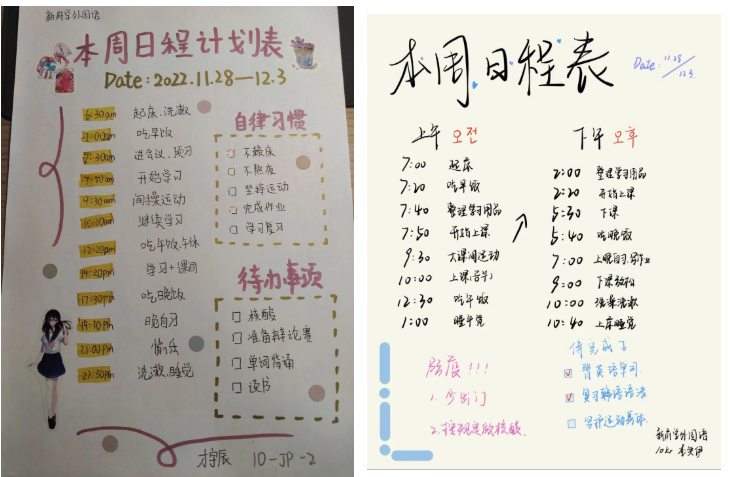 新府学外国语
本周日程计划表
Date:2022.11.28—12.3
6:30am 起床、洗漱
7:00am 吃早饭
7:30am 进会议、预习
7:50am 开始学习
9:30am 间操运动
10:00am 继续学习
12:20pm 吃午饭、午休
14:20pm 学习+课间
17:30pm 吃晚饭
19:30pm 晚自习
21:00pm 愉乐
22:30pm 洗漱、睡觉
自律习惯
不赖床
不熬夜
坚持运动
完成作业
学习复习
待办事项
核酸
准备辩论赛
单词背诵
读书
10-JP-2
本周日程表
Date: 11.28/12.3.
上午 오전
7:00 起床
7:20 吃早饭
7:40 整理学习用品
7:50 开始上课
9:30 大课间运动
10:00 上课
12:30 吃午饭
1:00 睡午觉
下午 오후
2:00 整理学习用品
2:20 开始上课
5:30 下课
5:40 吃晚饭
7:00 上晚自习、写作业
9:00 下课放松
10:00 洗澡洗漱
10:40 上床睡觉
防疫!!!
1.少出门
2.按规定做核酸.
待完成了
背英语单词.
复习韩语语法
坚持运动身体.
新府学外国语